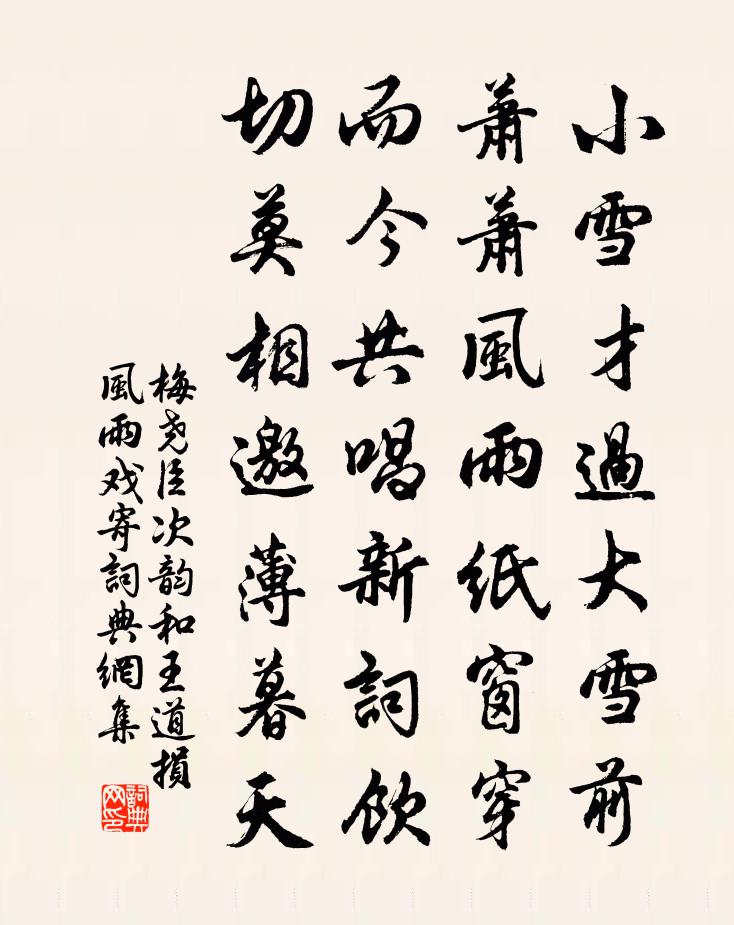 小雪才過大雪前
蕭蕭風雨紙窗穿
而今共唱新詞飲
切莫相邀薄暮天
梅尧臣次韵和王道損
風雨戏寄詞典網集
詞典网印